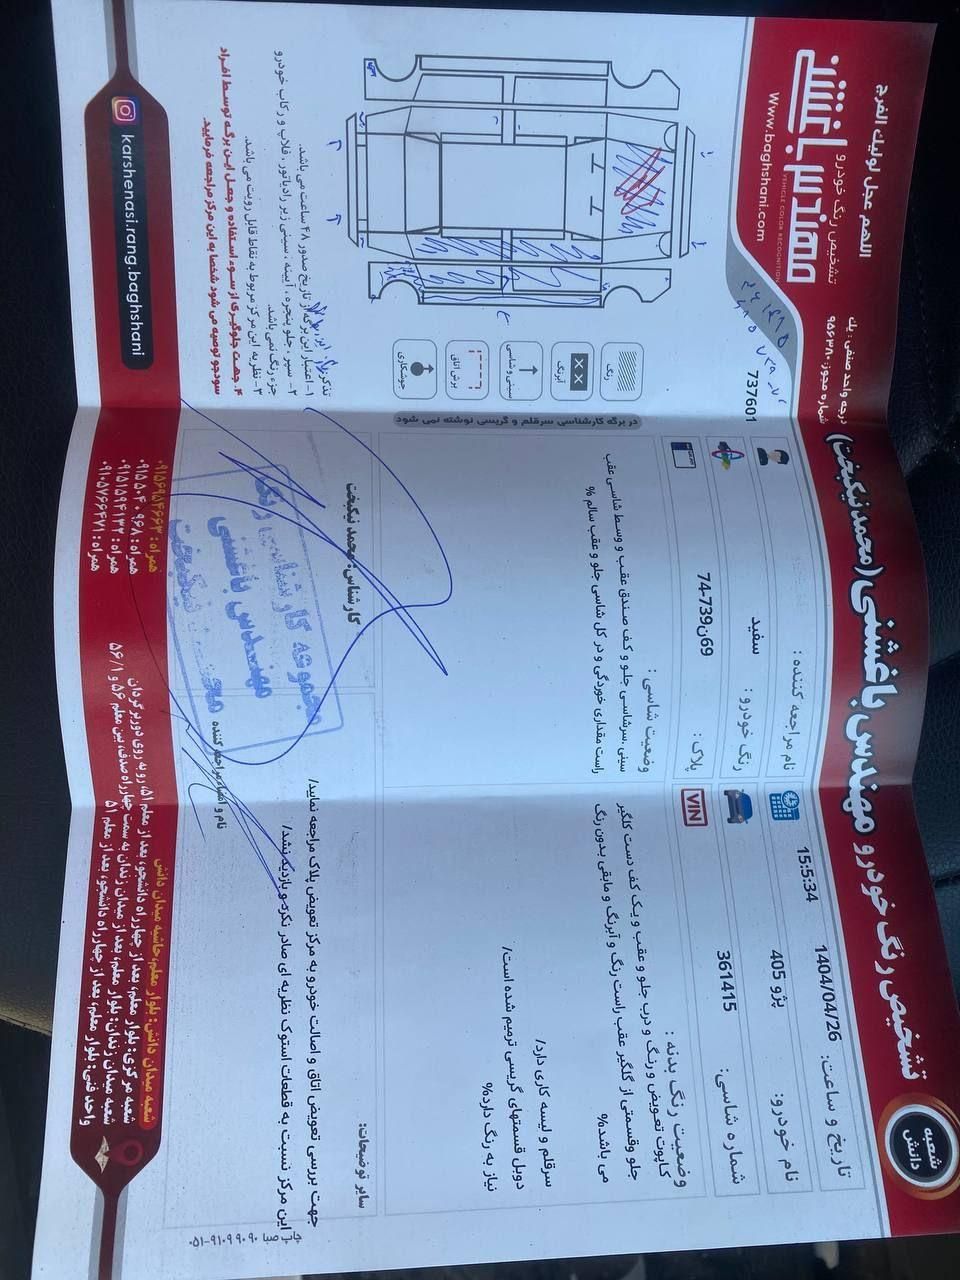 اللهم عجل لولیك الفرج
تشخیص رنگ خودرو
مهندس باغشنی
VEHICLE COLOR RECOGNITION
www.baghshani.com
تشخیص رنگ خودرو مهندس باغشنی (محمد نیکبخت)
شعبه دانش
درجه واحد صنفی: یك
شماره مجوز: ۹۵۶۳۸۰
737601
تاریخ و ساعت: 1404/04/26 15:5:34
نام مراجعه کننده:
نام خودرو: پژو 405
رنگ خودرو: سفید
شماره شاسی: 361415
پلاک: 69ن739-74
VIN
وضعیت رنگ بدنه:
کاپوت تعویض و رنگ و درب جلو و عقب و یک کف دست گلگیر
جلو و قسمتی از گلگیر عقب راست رنگ و آبرنگ و مابقی بدون رنگ
می باشد%
سرقلم و لیسه کاری دارد/
دوبل قسمتهای گریسی ترمیم شده است/
نیاز به رنگ دارد%
وضعیت شاسی:
سینی ،سرشاسی جلو و کف صندق عقب و وسط شاسی عقب
راست مقداری خوردگی و در کل شاسی جلو و عقب سالم %
رنگ
آبرنگ
سینی و شاسی
برش اتاق
جوشکاری
در برگه کارشناسی سرقلم و گریسی نوشته نمی شود
۱- اعتبار این برگه از تاریخ صدور ۴۸ ساعت می باشد.
۲- سپر ، جلو پنجره ، آیینه ، سینی زیر رادیاتور ، فلاپ و رکاب خودرو
جزء رنگ نمی باشد.
۳- نظریه این مرکز مربوط به نقاط قابل رویت می باشد.
۴. جهت جلوگیری از سوء استفاده و جعل این برگه توسط افراد
سودجو توصیه می شود شخصا به این مرکز مراجعه فرمایید.
سایر توضیحات:
جهت بررسی تعویض اتاق و اصالت خودرو به مرکز تعویض پلاک مراجعه نمایید/
این مرکز نسبت به قطعات استوک نظریه ای صادر نکرد و بازدید نشد/
کارشناس: محمد نیکبخت
نام و امضاء مراجعه کننده
مجموعه کارشناسی رنگ
مهندس باغشنی
چاپ صبا ۹۰ ۹۰ ۹۱۰۹-۰۵۱
karshenasi.rang.baghshani
همراه: ۰۹۱۵۶۹۵۴۶۶۳
همراه: ۹۶۸ ۰۹۱۵۵۰۴۰
همراه: ۰۹۱۵۱۵۹۴۱۳۲
همراه: ۰۹۱۰۵۷۶۶۴۷۱
شعبه میدان دانش: بلوار معلم،حاشیه میدان دانش
شعبه مرکزی: بلوار معلم، بعد از چهارراه دانشجو، بعد از معلم ۵۱، رو به روی دوربرگردان
شعبه میدان زندان: بلوار معلم، بعد از میدان زندان به سمت چهارراه صدف، بین معلم ۵۶ و ۵۶/۱
واحد فنی: بلوار معلم، بعد از چهارراه دانشجو، بعد از معلم ۵۱